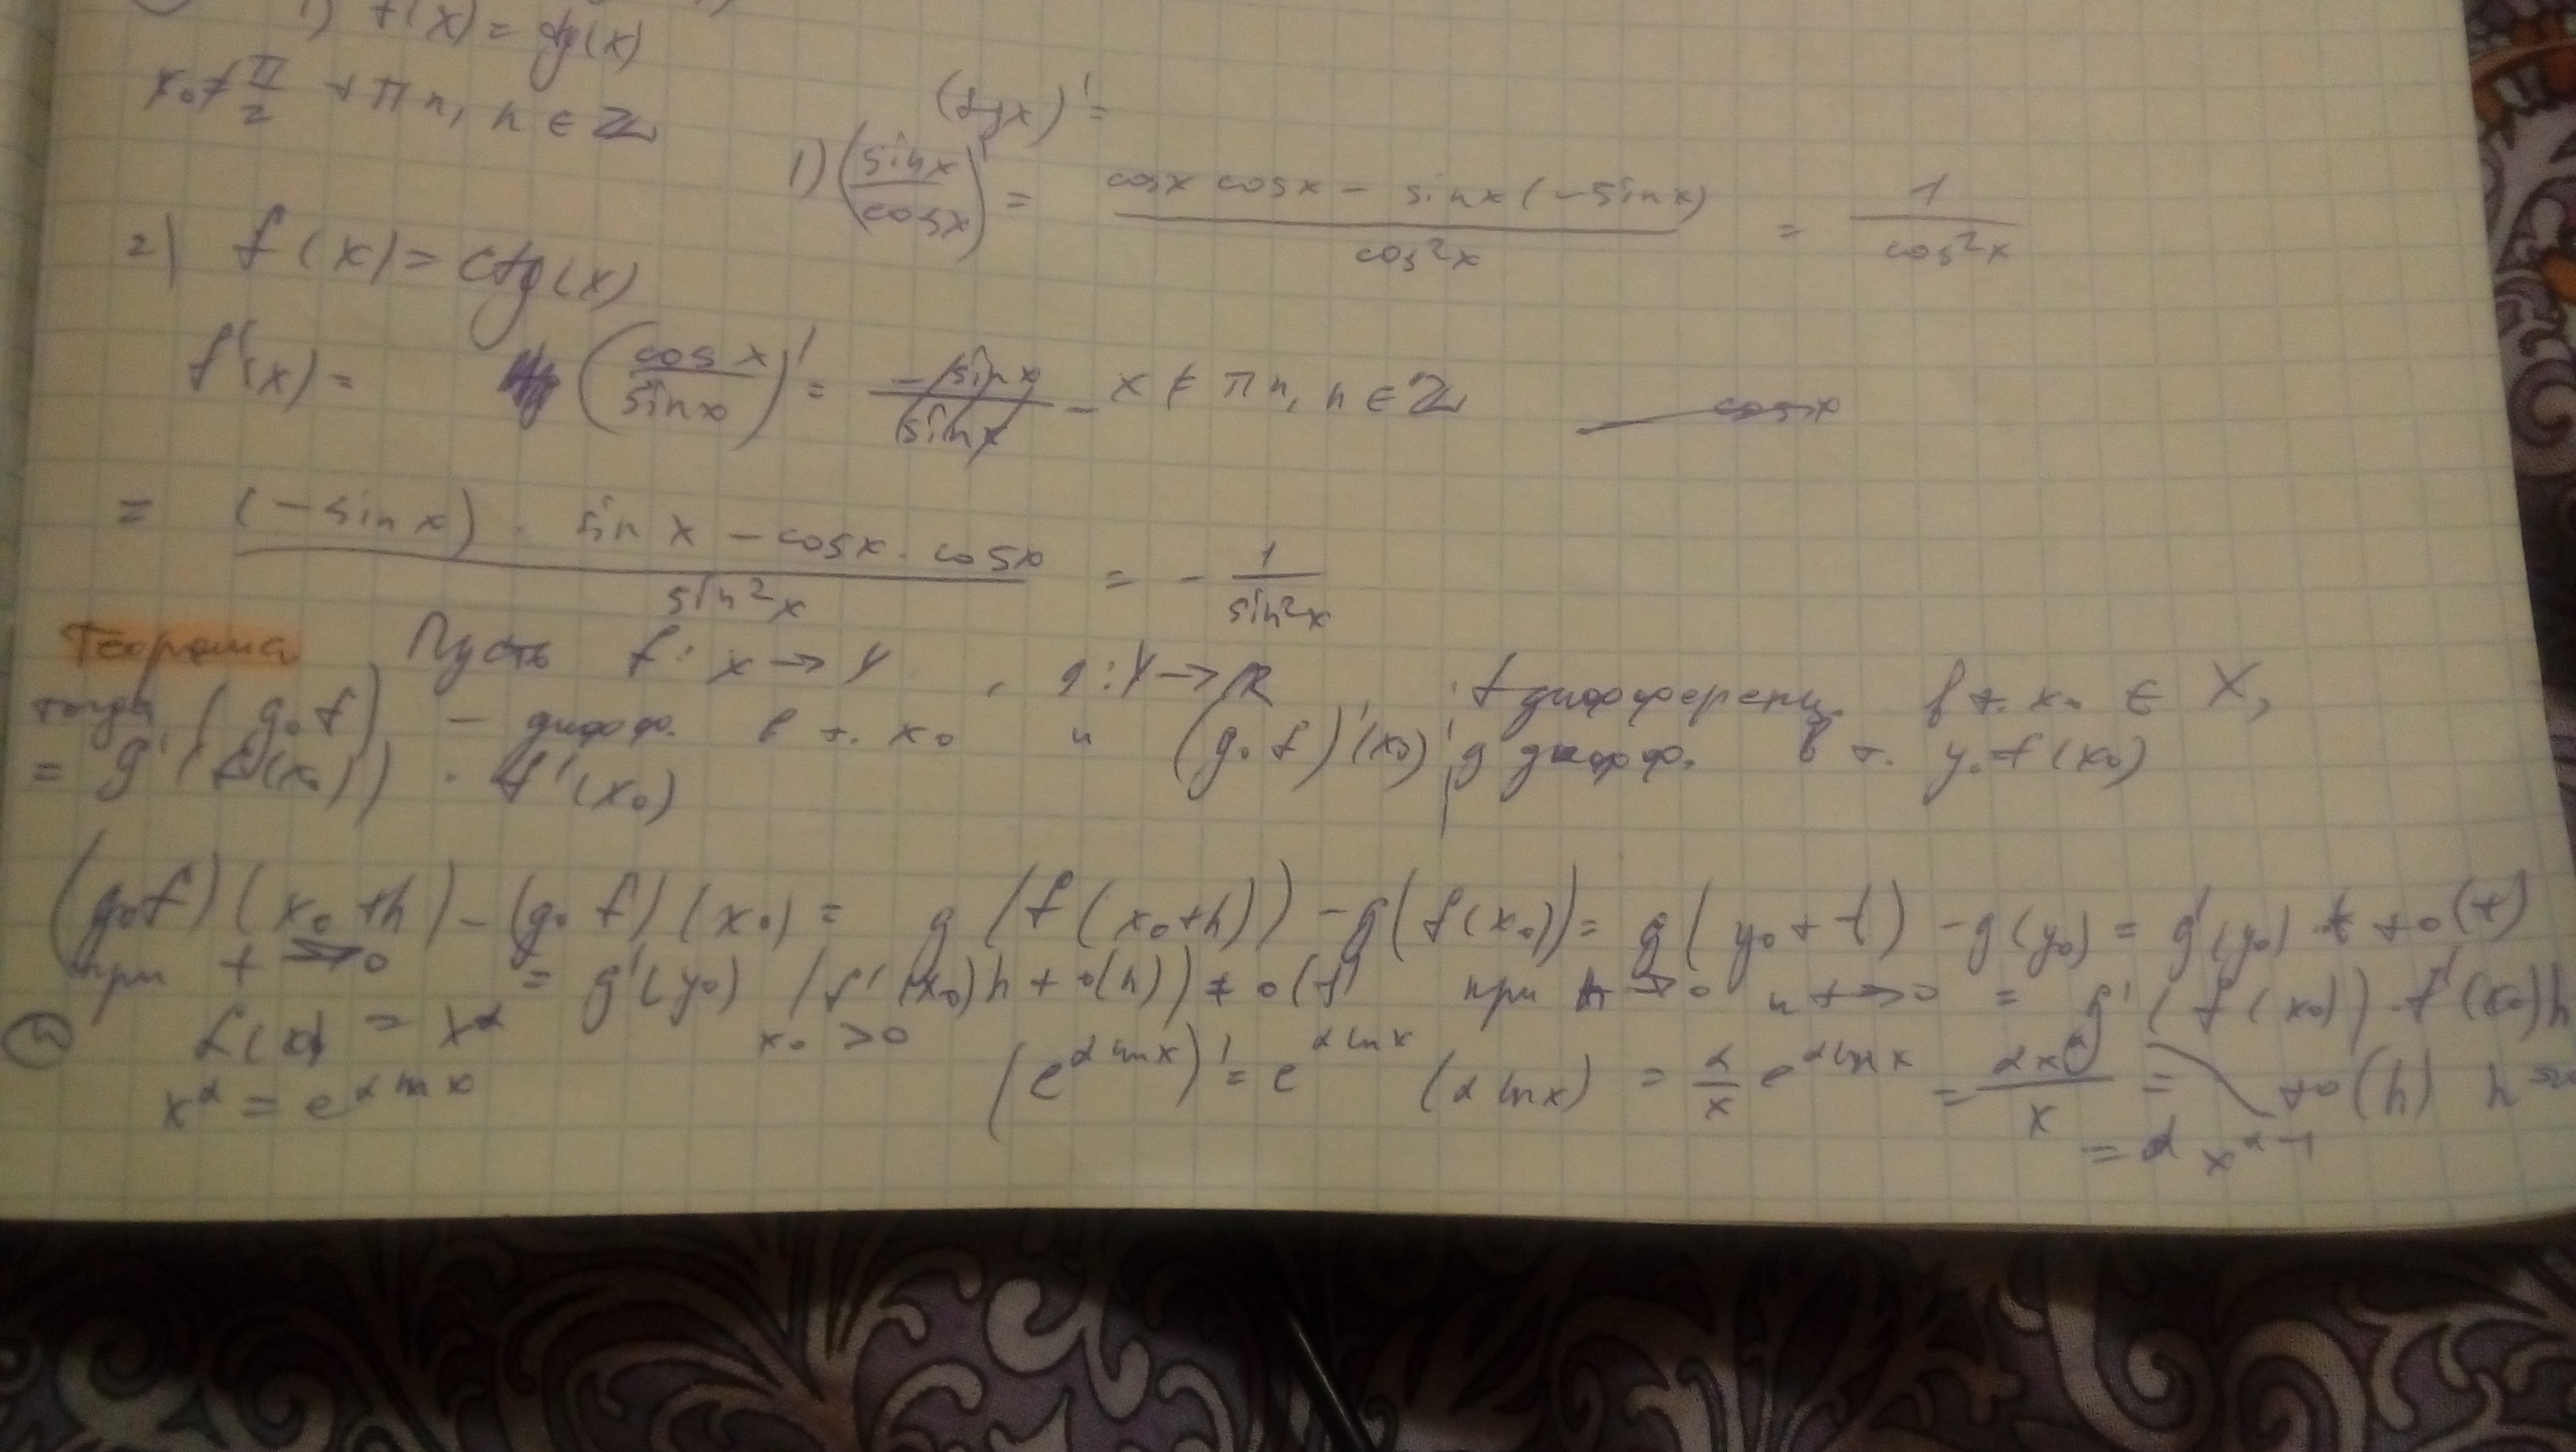 1) f(x) = tg(x)
x₀ ≠ π/2 + πn, n ∈ ℤ
(tgx)' =
1) (sinx/cosx)' = (cosx cosx − sinx(−sinx))/cos²x = 1/cos²x
2) f(x) = ctg(x)
f'(x) = (cos x/sinx)' = −sinx/sinx − x ≠ πn, n ∈ ℤ cosx
= ((−sinx) · sin x − cosx · cosx)/sin²x = − 1/sin²x
Теорема Пусть f: x → Y, g: Y → ℝ f дифференц. в т. x₀ ∈ X,
тогда (g∘f) − дифф. в т. x₀ и (g∘f)'(x₀) g дифф. в т. y₀=f(x₀)
= g'(f(x₀)) · f'(x₀)
(g∘f)(x₀+h) − (g∘f)(x₀) = g(f(x₀+h)) − g(f(x₀)) = g(y₀+t) − g(y₀) = g'(y₀)·t + o(t)
при t → 0 = g'(y₀)(f'(x₀)h + o(h)) + o(t) при h → 0 и t → 0 = g'(f(x₀))·f'(x₀)h
+o(h) h
f(x) = x^α x₀ > 0
x^α = e^(α ln x) (e^(α ln x))' = e^(α ln x) (α ln x) = α/x e^(α ln x) = αx^α/x =
= α x^(α−1)